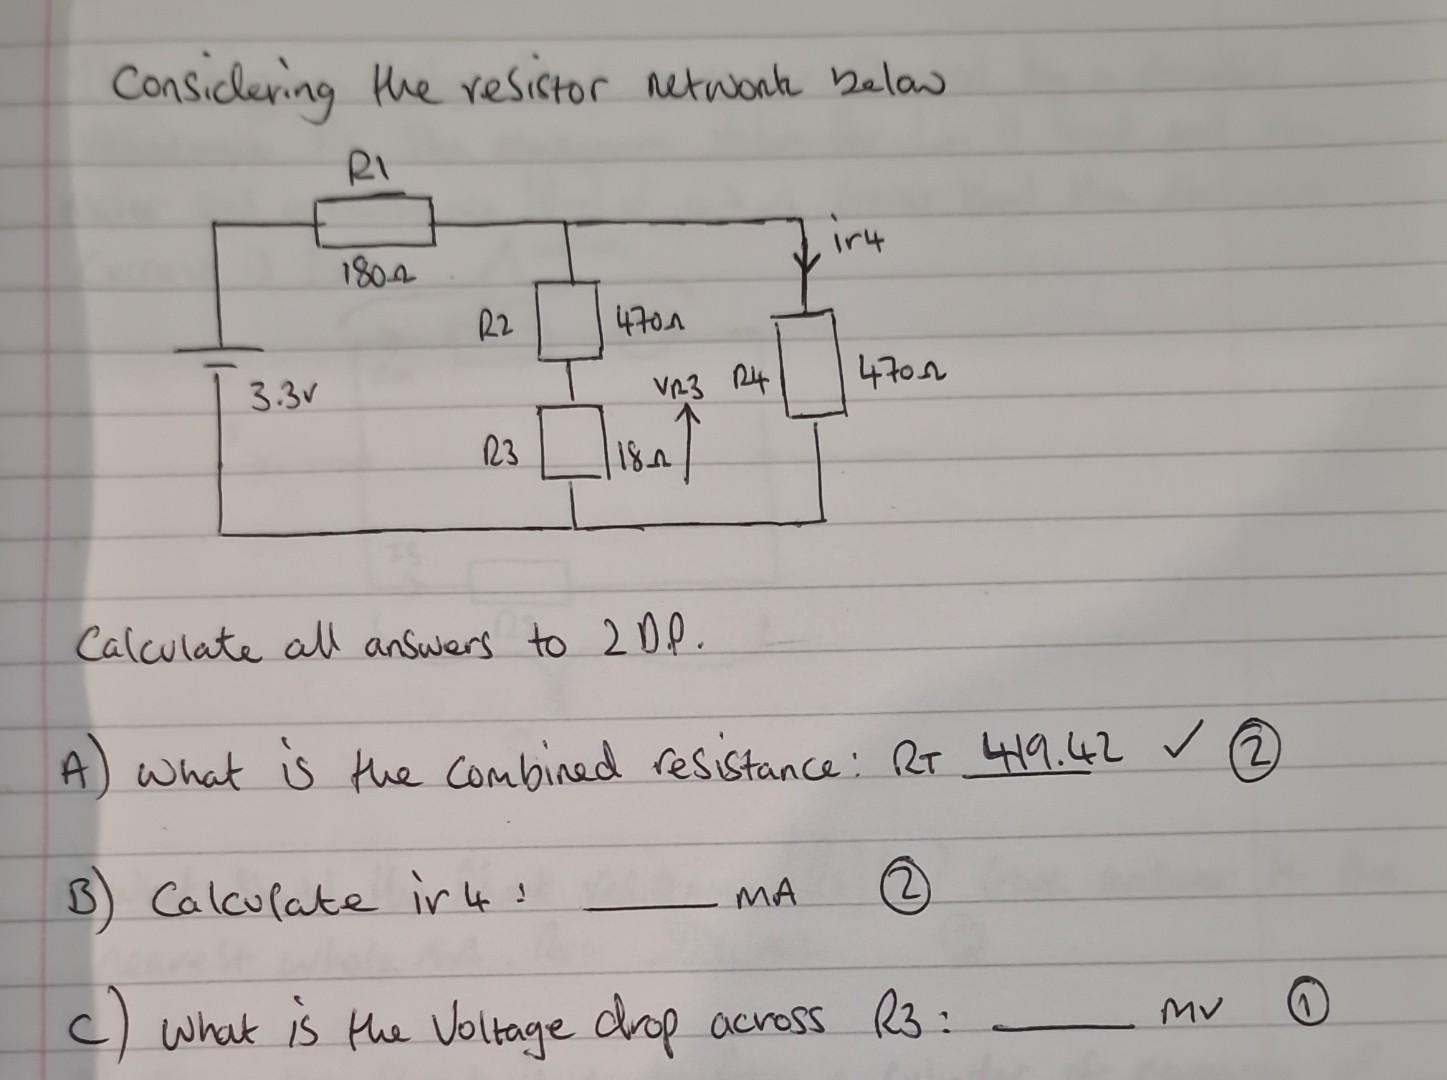 Considering the resistor network below
R1
180Ω
ir4
R2 470Ω
3.3v
VR3 R4 470Ω
R3 18Ω
Calculate all answers to 2 D.P.
A) What is the combined resistance: RT 419.42 ✓ ②
B) Calculate ir4: ____ mA ②
C) What is the Voltage drop across R3: ____ mv ①